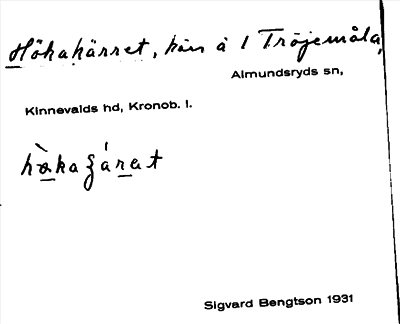 Hökakärret, kärr å 1 Tröjemåla,
Almundsryds sn,
Kinnevalds hd, Kronob. l.
Sigvard Bengtson 1931